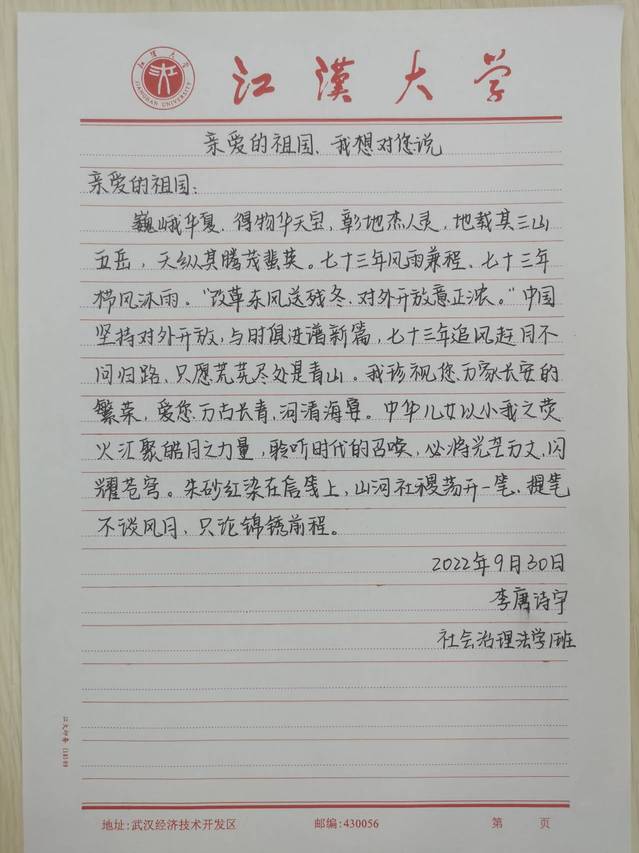 江漢大学
JIANGHAN UNIVERSITY
江漢大学
亲爱的祖国、我想对您说
亲爱的祖国：
巍峨华夏、得物华天宝，彰地杰人灵，地载其三山
五岳，天纵其腾茂蜚英。七十三年风雨兼程、七十三年
栉风沐雨。“改革东风送残冬、对外开放意正浓。”中国
坚持对外开放，与时俱进谱新篇，七十三年追风赶月不
问归路、只愿荒芜尽处是青山。我珍视您万家长安的
繁荣，爱您万古长青，河清海晏。中华儿女以小我之荧
火汇聚皓月之力量，聆听时代的召唤，必将光芒万丈，闪
耀苍穹。朱砂红染在信笺上，山河社稷荡开一笔、提笔
不谈风月、只论锦锈前程。
2022年9月30日
李唐诗宇
社会治理法学1班
地址:武汉经济技术开发区 邮编:430056 第 页